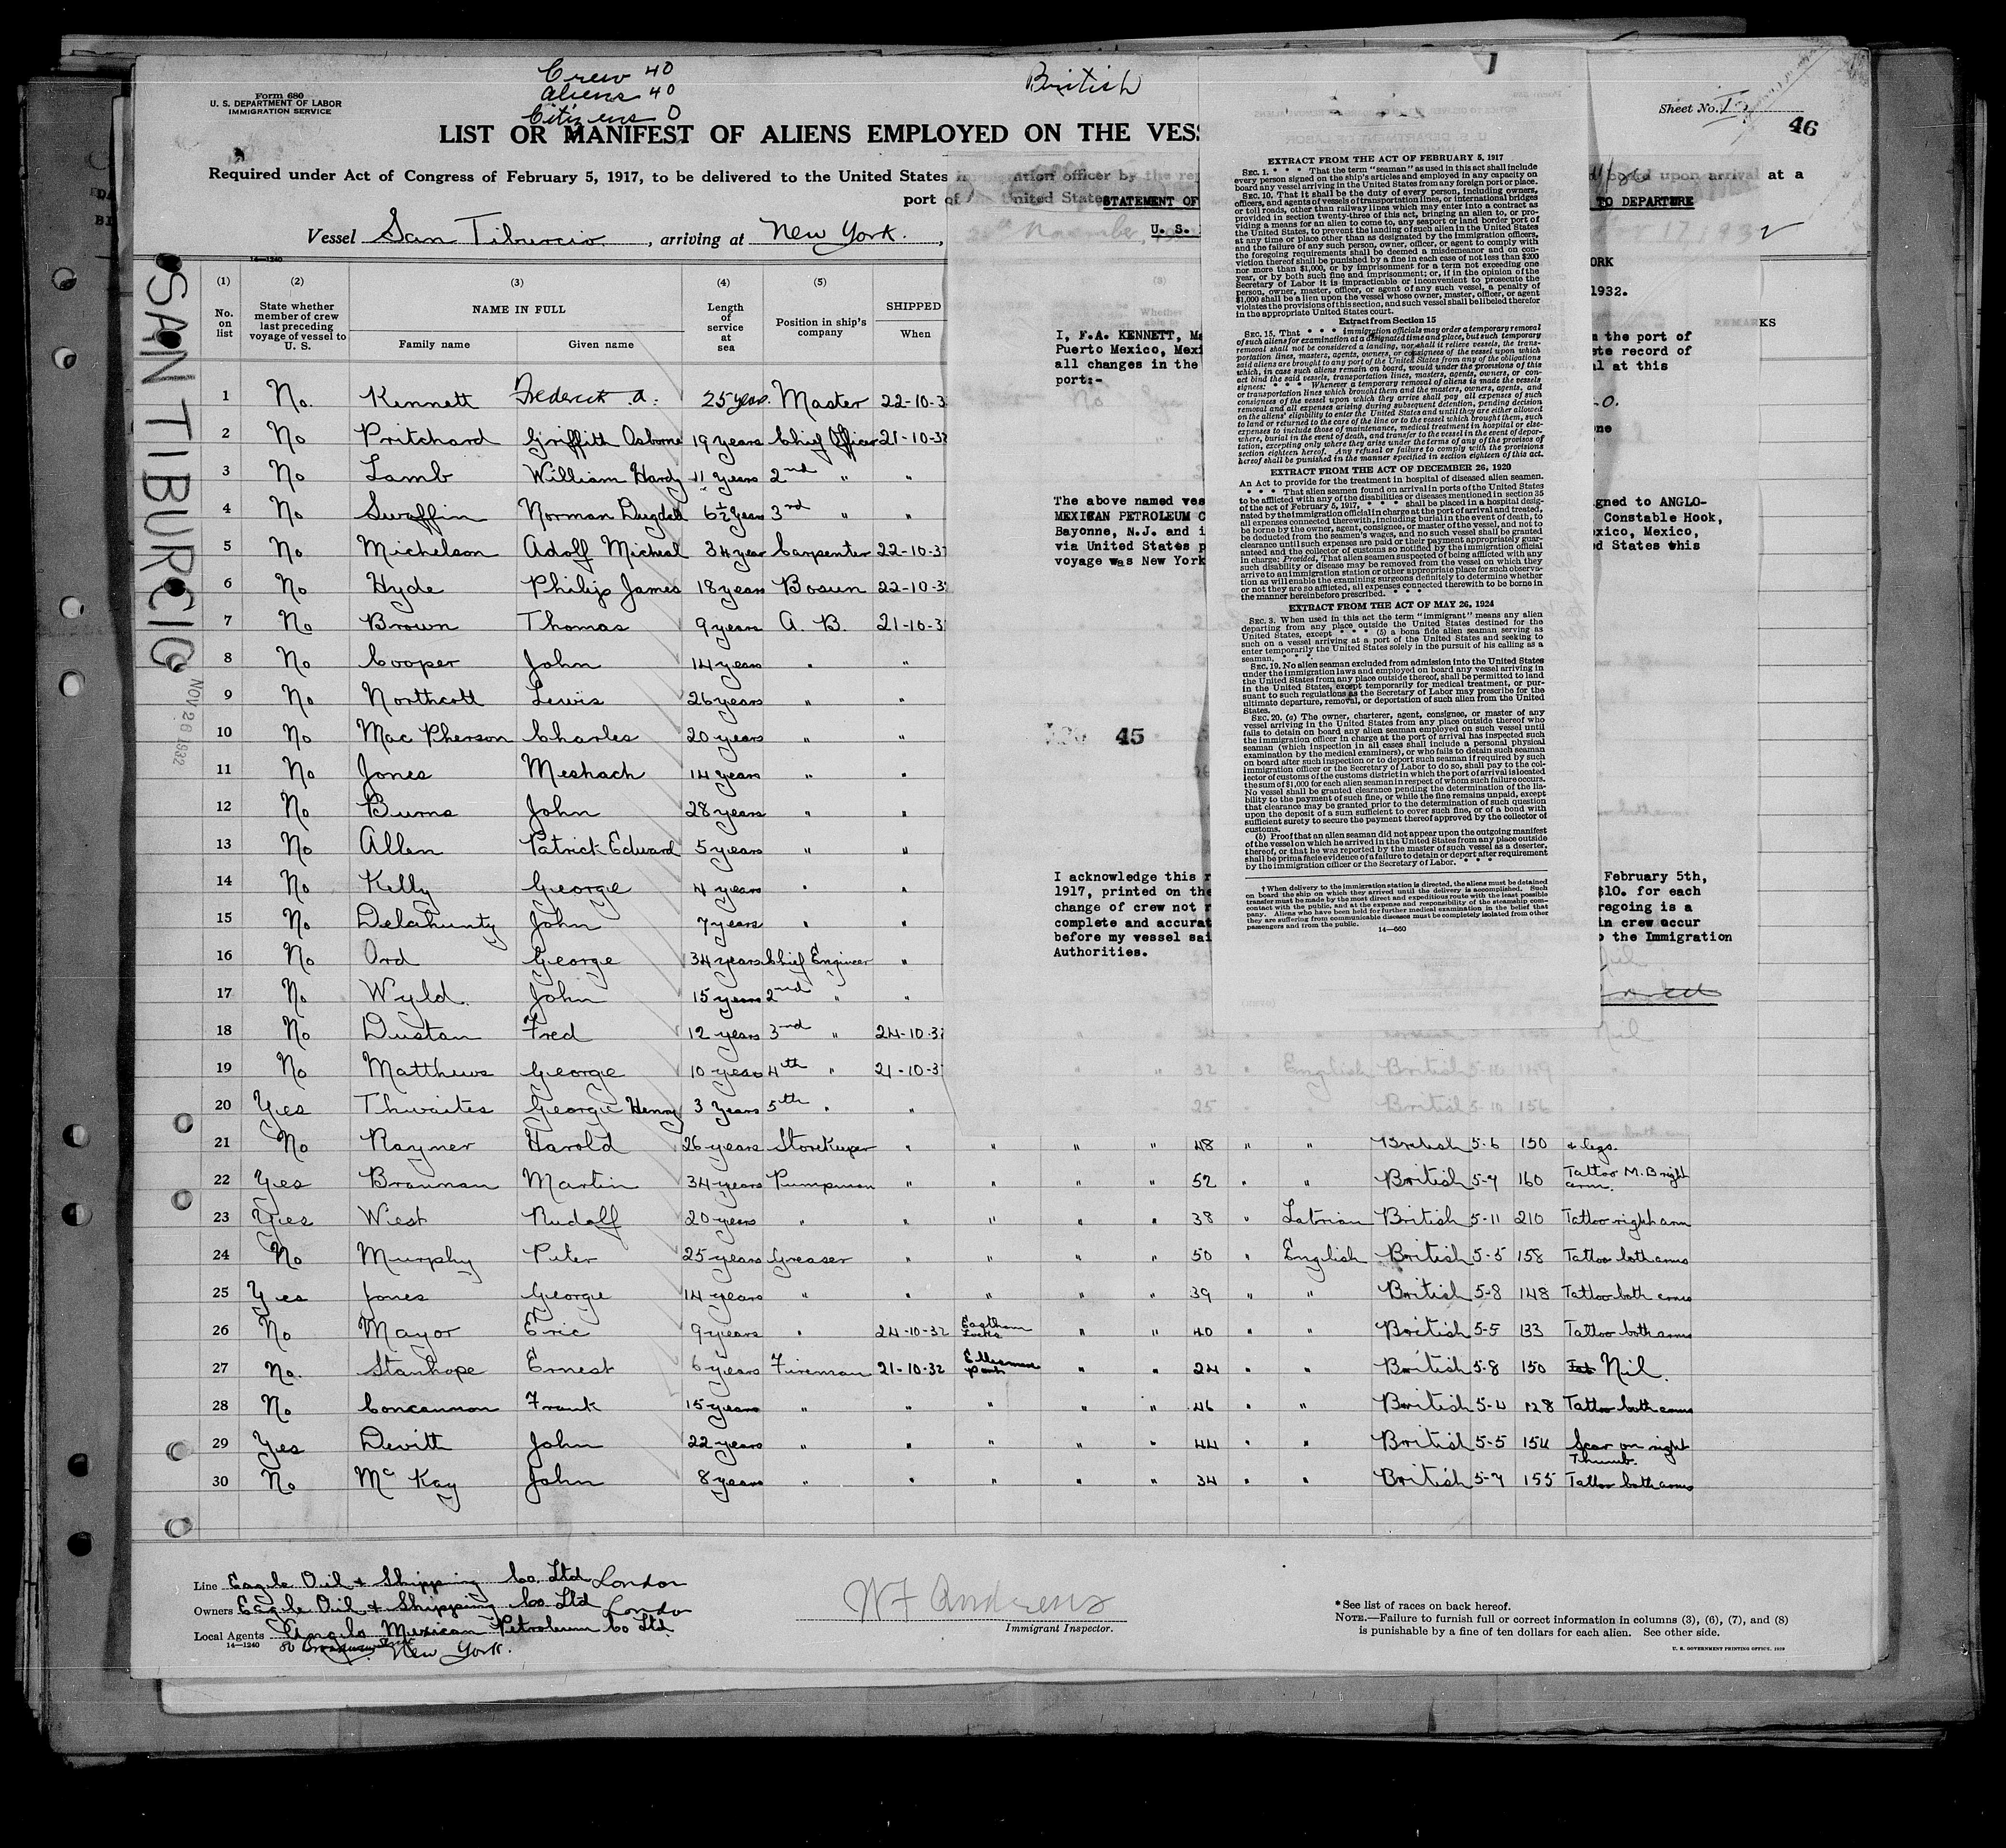 Crew 40
Aliens 40
Citizens 0
British
Form 680
U. S. DEPARTMENT OF LABOR
IMMIGRATION SERVICE
Sheet No.
46
LIST OR MANIFEST OF ALIENS EMPLOYED ON THE VESS
Required under Act of Congress of February 5, 1917, to be delivered to the United States
upon arrival at a
port of United States
STATEMENT OF
TO DEPARTURE
Vessel San Tiburcio, arriving at New York.,
November,
U. S.
17, 1932
ORK
1932.
SAN TIBURCIO
NOV 26 1932
14—1240
(1) (2) (3) (4) (5)
No. on list
State whether member of crew last preceding voyage of vessel to U. S.
NAME IN FULL
Family name Given name
Length of service at sea
Position in ship's company
SHIPPED
When
REMARKS
1 No. Kennett Frederick A. 25 years. Master 22-10-3
2 No Pritchard Griffith Osborne 19 years Chief Officer 21-10-32
3 No Lamb William Hardy 11 years 2nd " "
4 No Swaffin Norman Dugdall 6½ years 3rd " "
5 No Michelson Adolf Micheal 34 year Carpenter 22-10-37
6 No Hyde Philip James 18 years Bosun 22-10-3
7 No Brown Thomas 9 years A. B. 21-10-3
8 No Cooper John 14 years " "
9 No Northcott Lewis 26 years " "
10 No Mac Pherson Charles 20 years " "
11 No Jones Meshach 14 years " "
12 No Burns John 28 years " "
13 No Allen Patrick Edward 5 years " "
14 No Kelly George 4 years " "
15 No Delahunty John 7 years " "
16 No Ord George 34 years Chief Engineer "
17 No Wyld. John 15 years 2nd " "
18 No Dustan Fred 12 years 3rd " 24-10-32
19 No Matthews George 10 years 4th " 21-10-3
32 " English British 5-10 149 "
20 Yes Thwaites George Henry 3 years 5th " "
25 British 5-10 156
21 No Rayner Harold 26 years Storekeeper " " " " 48 " " British 5-6 150 & legs.
22 Yes Brannan Martin 34 years Pumpman " " " " 52 " " British 5-7 160 Tattoo M.B right arm.
23 Yes Wiest Rudolf 20 years " " " " " 38 " Latvian British 5-11 210 Tattoo right arm
24 No Murphy Peter 25 years Greaser " " " " 50 " English British 5-5 158 Tattoo both arms
25 Yes Jones George 14 years " " " " " 39 " " British 5-8 148 Tattoo both arms
26 No Mayor Eric 9 years " 24-10-32 Eastham Locks " " 40 " " British 5-5 133 Tattoo both arms
27 No. Stanhope Ernest 6 years Fireman 21-10-32 Ellesmere Port " " 24 " " British 5-8 150 Nil.
28 No Concannon Frank 15 years " " " " " 46 " " British 5-4 128 Tattoo both arms
29 Yes Devitt John 22 years " " " " " 44 " " British 5-5 154 Scar on right Thumb.
30 No Mc Kay John 8 years " " " " " 34 " " British 5-7 155 Tattoo both arms
I, F.A. KENNETT, Ma
Puerto Mexico, Mexi
all changes in the
port:-
the port of
ete record of
al at this
The above named ves
MEXICAN PETROLEUM C
Bayonne, N.J. and i
via United States p
voyage was New York
igned to ANGLO-
Constable Hook,
exico, Mexico,
ed States this
45
I acknowledge this r
1917, printed on the
change of crew not r
complete and accurat
before my vessel sai
Authorities.
February 5th,
$10. for each
regoing is a
in crew occur
o the Immigration
EXTRACT FROM THE ACT OF FEBRUARY 5, 1917
SEC. 1. * * * That the term "seaman" as used in this act shall include
every person signed on the ship's articles and employed in any capacity on
board any vessel arriving in the United States from any foreign port or place.
SEC. 10. That it shall be the duty of every person, including owners,
officers, and agents of vessels of transportation lines, or international bridges
or toll roads, other than railway lines which may enter into a contract as
provided in section twenty-three of this act, bringing an alien to, or pro-
viding a means for an alien to come to, any seaport or land border port of
the United States, to prevent the landing of such alien in the United States
at any time or place other than as designated by the immigration officers,
and the failure of any such person, owner, officer, or agent to comply with
the foregoing requirements shall be deemed a misdemeanor and on con-
viction thereof shall be punished by a fine in each case of not less than $200
nor more than $1,000, or by imprisonment for a term not exceeding one
year, or by both such fine and imprisonment; or, if in the opinion of the
Secretary of Labor it is impracticable or inconvenient to prosecute the
person, owner, master, officer, or agent of any such vessel, a penalty of
$1,000 shall be a lien upon the vessel whose owner, master, officer, or agent
violates the provisions of this section, and such vessel shall be libeled therefor
in the appropriate United States court.
Extract from Section 15
SEC. 15. That * * * immigration officials may order a temporary removal
of such aliens for examination at a designated time and place, but such temporary
removal shall not be considered a landing, nor shall it relieve vessels, the trans-
portation lines, masters, agents, owners, or consignees of the vessel upon which
said aliens are brought to any port of the United States from any of the obligations
which, in case such aliens remain on board, would under the provisions of this
act bind the said vessels, transportation lines, masters, agents, owners, or con-
signees: * * * Whenever a temporary removal of aliens is made the vessels
or transportation lines which brought them and the masters, owners, agents, and
consignees of the vessel upon which they arrive shall pay all expenses of such
removal and all expenses arising during subsequent detention, pending decision
on the aliens' eligibility to enter the United States and until they are either allowed
to land or returned to the care of the line or to the vessel which brought them, such
expenses to include those of maintenance, medical treatment in hospital or else-
where, burial in the event of death, and transfer to the vessel in the event of depor-
tation, excepting only where they arise under the terms of any of the provisos of
section eighteen hereof. Any refusal or failure to comply with the provisions
hereof shall be punished in the manner specified in section eighteen of this act.
EXTRACT FROM THE ACT OF DECEMBER 26, 1920
An Act to provide for the treatment in hospital of diseased alien seamen.
* * * That alien seamen found on arrival in ports of the United States
to be afflicted with any of the disabilities or diseases mentioned in section 35
of the act of February 5, 1917, * * * shall be placed in a hospital desig-
nated by the immigration official in charge at the port of arrival and treated,
all expenses connected therewith, including burial in the event of death, to
be borne by the owner, agent, consignee, or master of the vessel, and not to
be deducted from the seamen's wages, and no such vessel shall be granted
clearance until such expenses are paid or their payment appropriately guar-
anteed and the collector of customs so notified by the immigration official
in charge: Provided, That alien seamen suspected of being afflicted with any
such disability or disease may be removed from the vessel on which they
arrive to an immigration station or other appropriate place for such observa-
tion as will enable the examining surgeons definitely to determine whether
or not they are so afflicted, all expenses connected therewith to be borne in
the manner hereinbefore prescribed. * * *
EXTRACT FROM THE ACT OF MAY 26, 1924
SEC. 3. When used in this act the term "immigrant" means any alien
departing from any place outside the United States destined for the
United States, except * * * (5) a bona fide alien seaman serving as
such on a vessel arriving at a port of the United States and seeking to
enter temporarily the United States solely in the pursuit of his calling as a
seaman. * * *
SEC. 19. No alien seaman excluded from admission into the United States
under the immigration laws and employed on board any vessel arriving in
the United States from any place outside thereof, shall be permitted to land
in the United States, except temporarily for medical treatment, or pur-
suant to such regulations as the Secretary of Labor may prescribe for the
ultimate departure, removal, or deportation of such alien from the United
States.
SEC. 20. (a) The owner, charterer, agent, consignee, or master of any
vessel arriving in the United States from any place outside thereof who
fails to detain on board any alien seaman employed on such vessel until
the immigration officer in charge at the port of arrival has inspected such
seaman (which inspection in all cases shall include a personal physical
examination by the medical examiners), or who fails to detain such seaman
on board after such inspection or to deport such seaman if required by such
immigration officer or the Secretary of Labor to do so, shall pay to the col-
lector of customs of the customs district in which the port of arrival is located
the sum of $1,000 for each alien seaman in respect of whom such failure occurs.
No vessel shall be granted clearance pending the determination of the lia-
bility to the payment of such fine, or while the fine remains unpaid, except
that clearance may be granted prior to the determination of such question
upon the deposit of a sum sufficient to cover such fine, or of a bond with
sufficient surety to secure the payment thereof approved by the collector of
customs.
(b) Proof that an alien seaman did not appear upon the outgoing manifest
of the vessel on which he arrived in the United States from any place outside
thereof, or that he was reported by the master of such vessel as a deserter,
shall be prima facie evidence of a failure to detain or deport after requirement
by the immigration officer or the Secretary of Labor. * * *
† When delivery to the immigration station is directed, the aliens must be detained
on board the ship on which they arrived until the delivery is accomplished. Such
transfer must be made by the most direct and expeditious route with the least possible
contact with the public, and at the expense and responsibility of the steamship com-
pany. Aliens who have been held for further medical examination in the belief that
they are suffering from communicable diseases must be completely isolated from other
passengers and from the public.
14—660
Line Eagle Oil & Shipping Co. Ltd London
Owners Eagle Oil & Shipping Co Ltd London
Local Agents Anglo Mexican Petroleum Co Ltd.
14—1240
80 Broad Street New York.
W F Andrews
Immigrant Inspector.
* See list of races on back hereof.
NOTE.—Failure to furnish full or correct information in columns (3), (6), (7), and (8)
is punishable by a fine of ten dollars for each alien. See other side.
U. S. GOVERNMENT PRINTING OFFICE. 1929